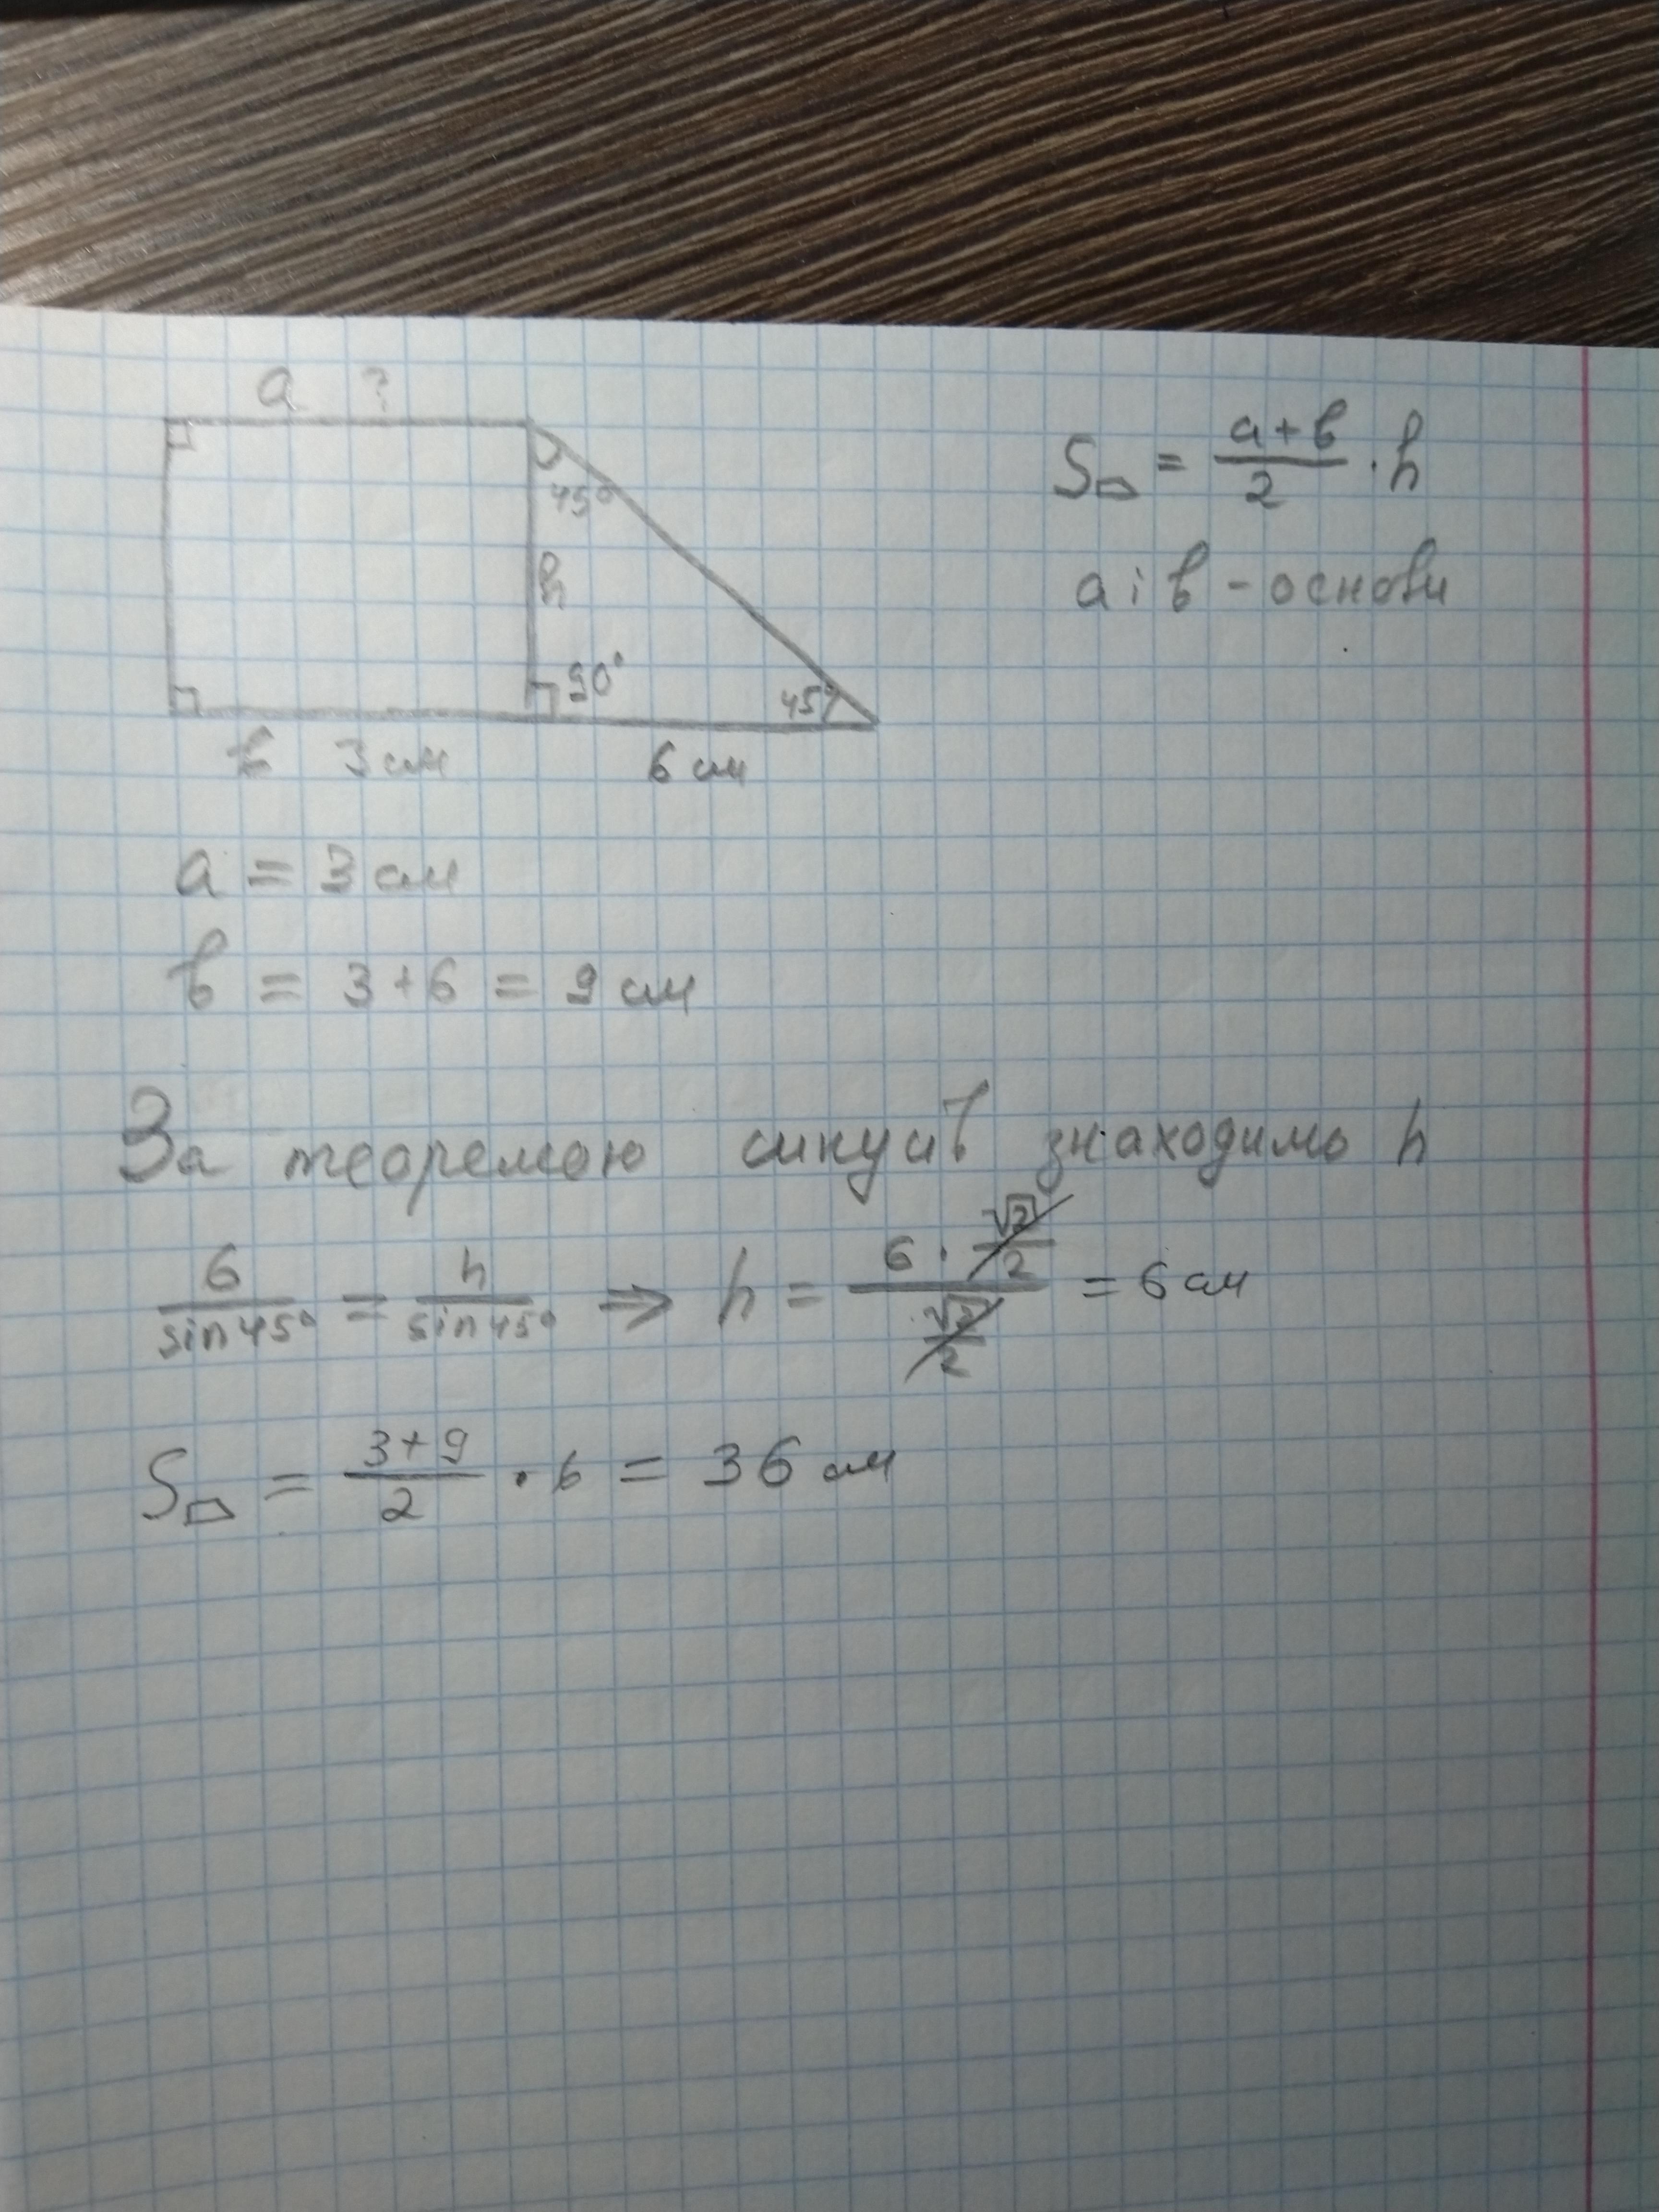 a ?
45°
h
90°
45°
в 3 см
6 см
S▱ = (a + в)/2 · h
a і в - основи
a = 3 см
в = 3 + 6 = 9 см
За теоремою синусів знаходимо h
6/sin45° = h/sin45° ⇒ h = (6 · √2/2)/(√2/2) = 6 см
S▱ = (3 + 9)/2 · 6 = 36 см